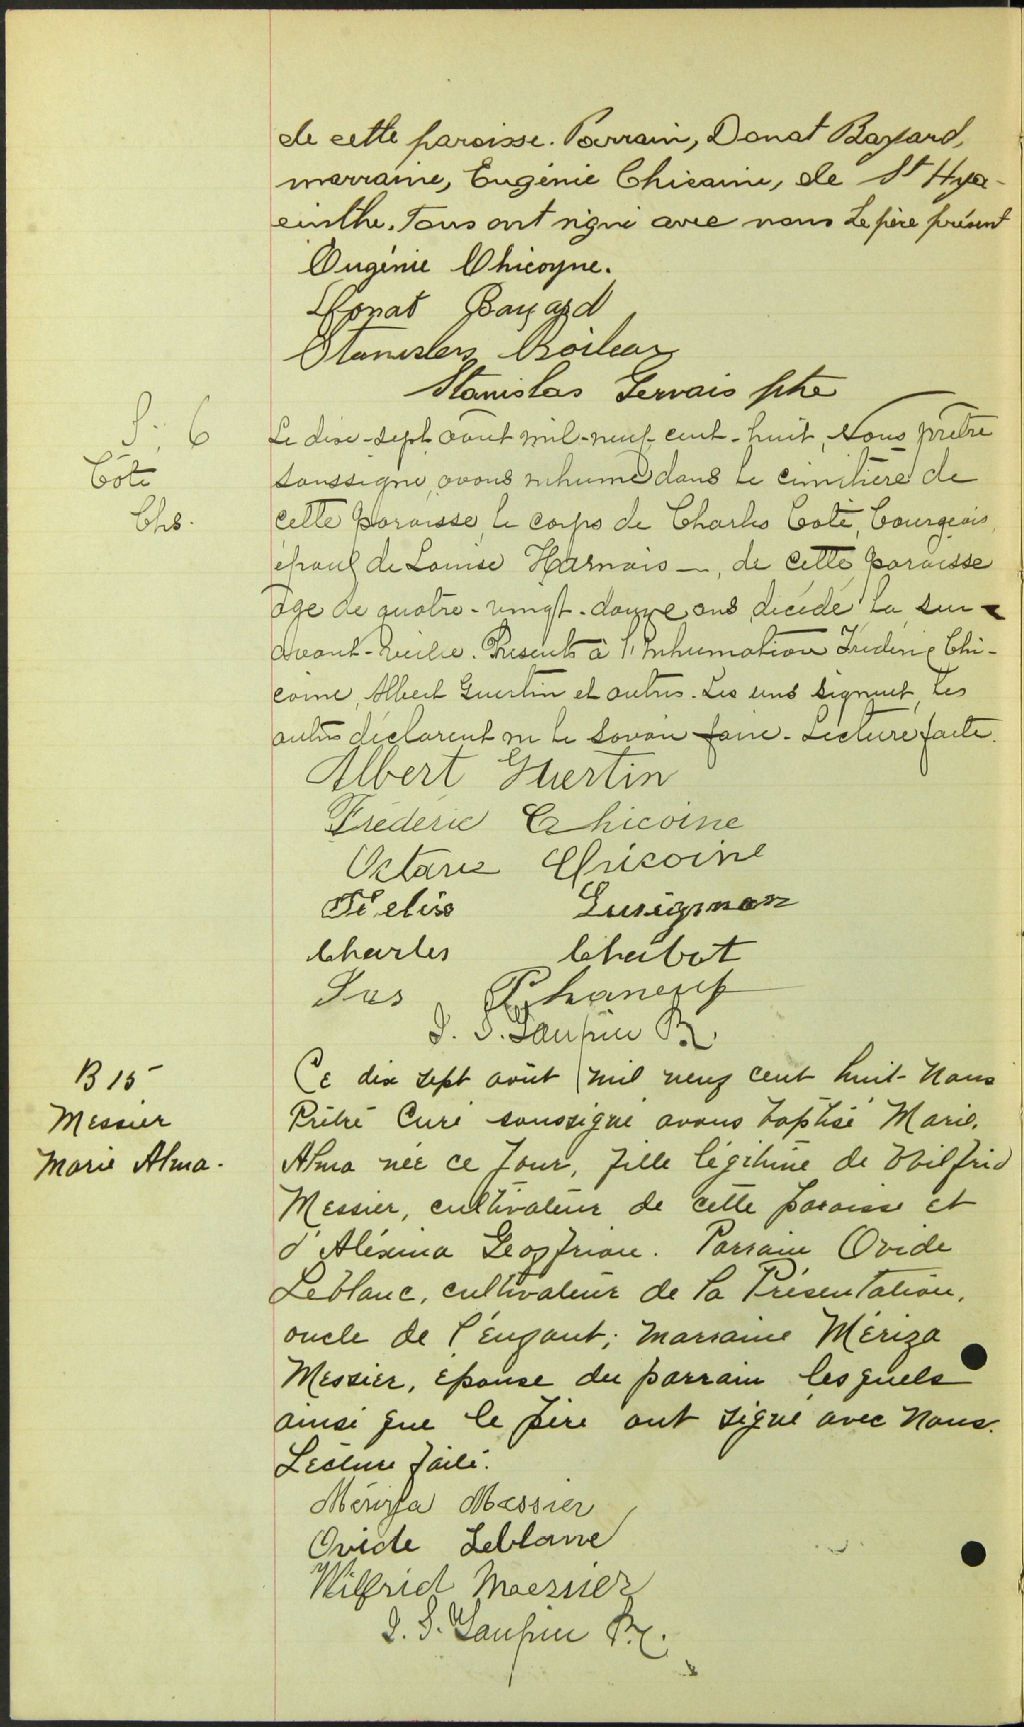 de cette paroisse. Parrain, Donat Bayard,
marraine, Eugénie Chicoine, de St Hya-
cinthe. Tous ont signé avec nous Le père présent
Eugénie Chicoyne.
Donat Bayard
Stanislas Boileau
Stanislas Gervais ptre
S. 6
Côté
Chs.
Le dix-sept août mil-neuf-cent-huit, Nous prêtre
soussigné, avons inhumé dans le cimetière de
cette paroisse, le corps de Charles Coté, bourgeois,
époux de Louise Harnois —, de cette paroisse
âge de quatre-vingt-douze ans, décédé la sur-
avant-veille. Présents à l'inhumation Fréderic Chi-
coine, Albert Guertin et autres. Les uns signent, les
autres déclarent ne le savoir faire. Lecture faite.
Albert Guertin
Fréderic Chicoine
Octave Chicoine
Félix Lusignan
Charles Chabot
Phaneuf
B 15
Messier
Marie Alma.
Ce dix sept août mil neuf cent huit Nous
Prêtre Curé soussigné avons baptisé Marie,
Alma née ce jour, fille légitime de Wilfrid
Messier, cultivateur de cette paroisse et
d'Aléxina Geoffrion. Parrain Ovide
Leblanc, cultivateur de la Présentation,
oncle de l'enfant; marraine Mériza
Messier, épouse du parrain lesquels
ainsi que le père ont signé avec Nous.
Lecture faite.
Mériza Messier
Ovide Leblanc
Wilfrid Messier